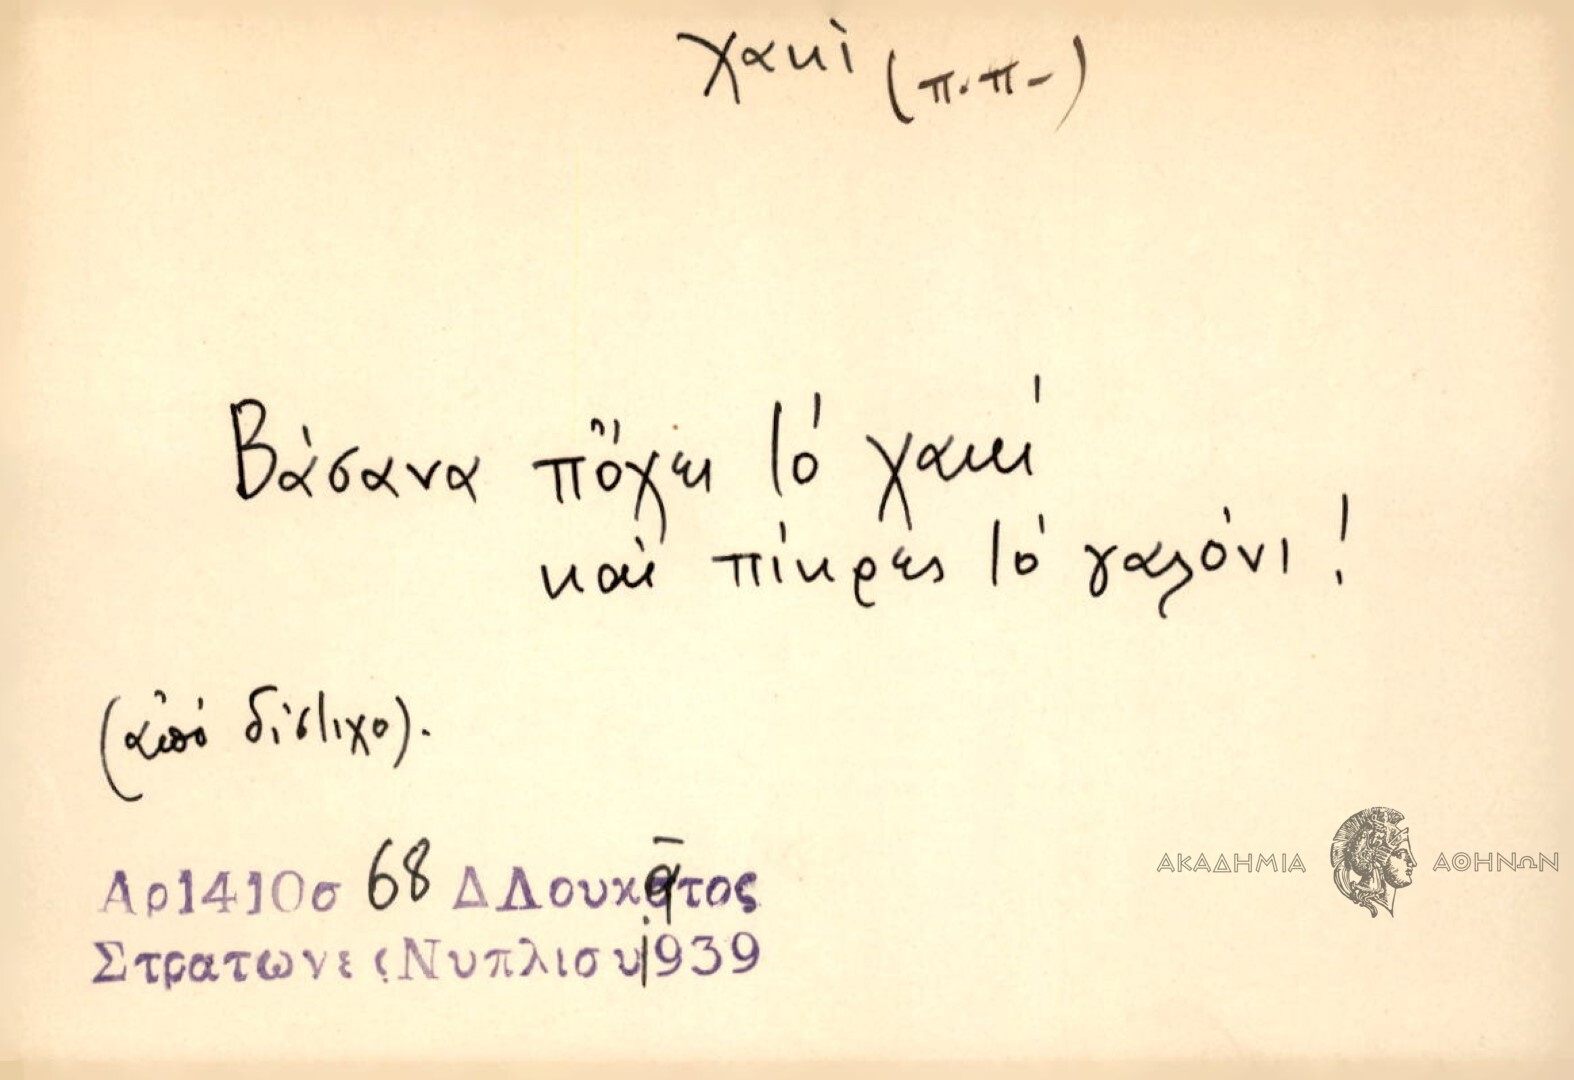 χακὶ (π.π-)
Βάσανα πὄχει τὸ χακί
καὶ πίκρες τὸ γαλόνι!
(ἀπὸ δίστιχο).
Αρ141Οσ 68 ΔΛουκᾱτος
Στρατωνες Νυπλισυ 1939
ΑΚΑΔΗΜΙΑ ΑΘΗΝΩΝ